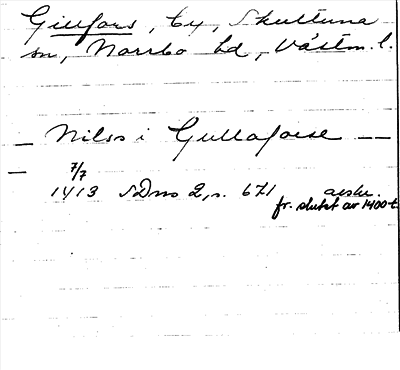 Gillfors, by, Skultuna
sn, Norrbo hd, Västm. l.
— Nilss i Gullaforse —
— 7/7
1413 SDns 2, s. 671 avskr.
fr. slutet av 1400-t.